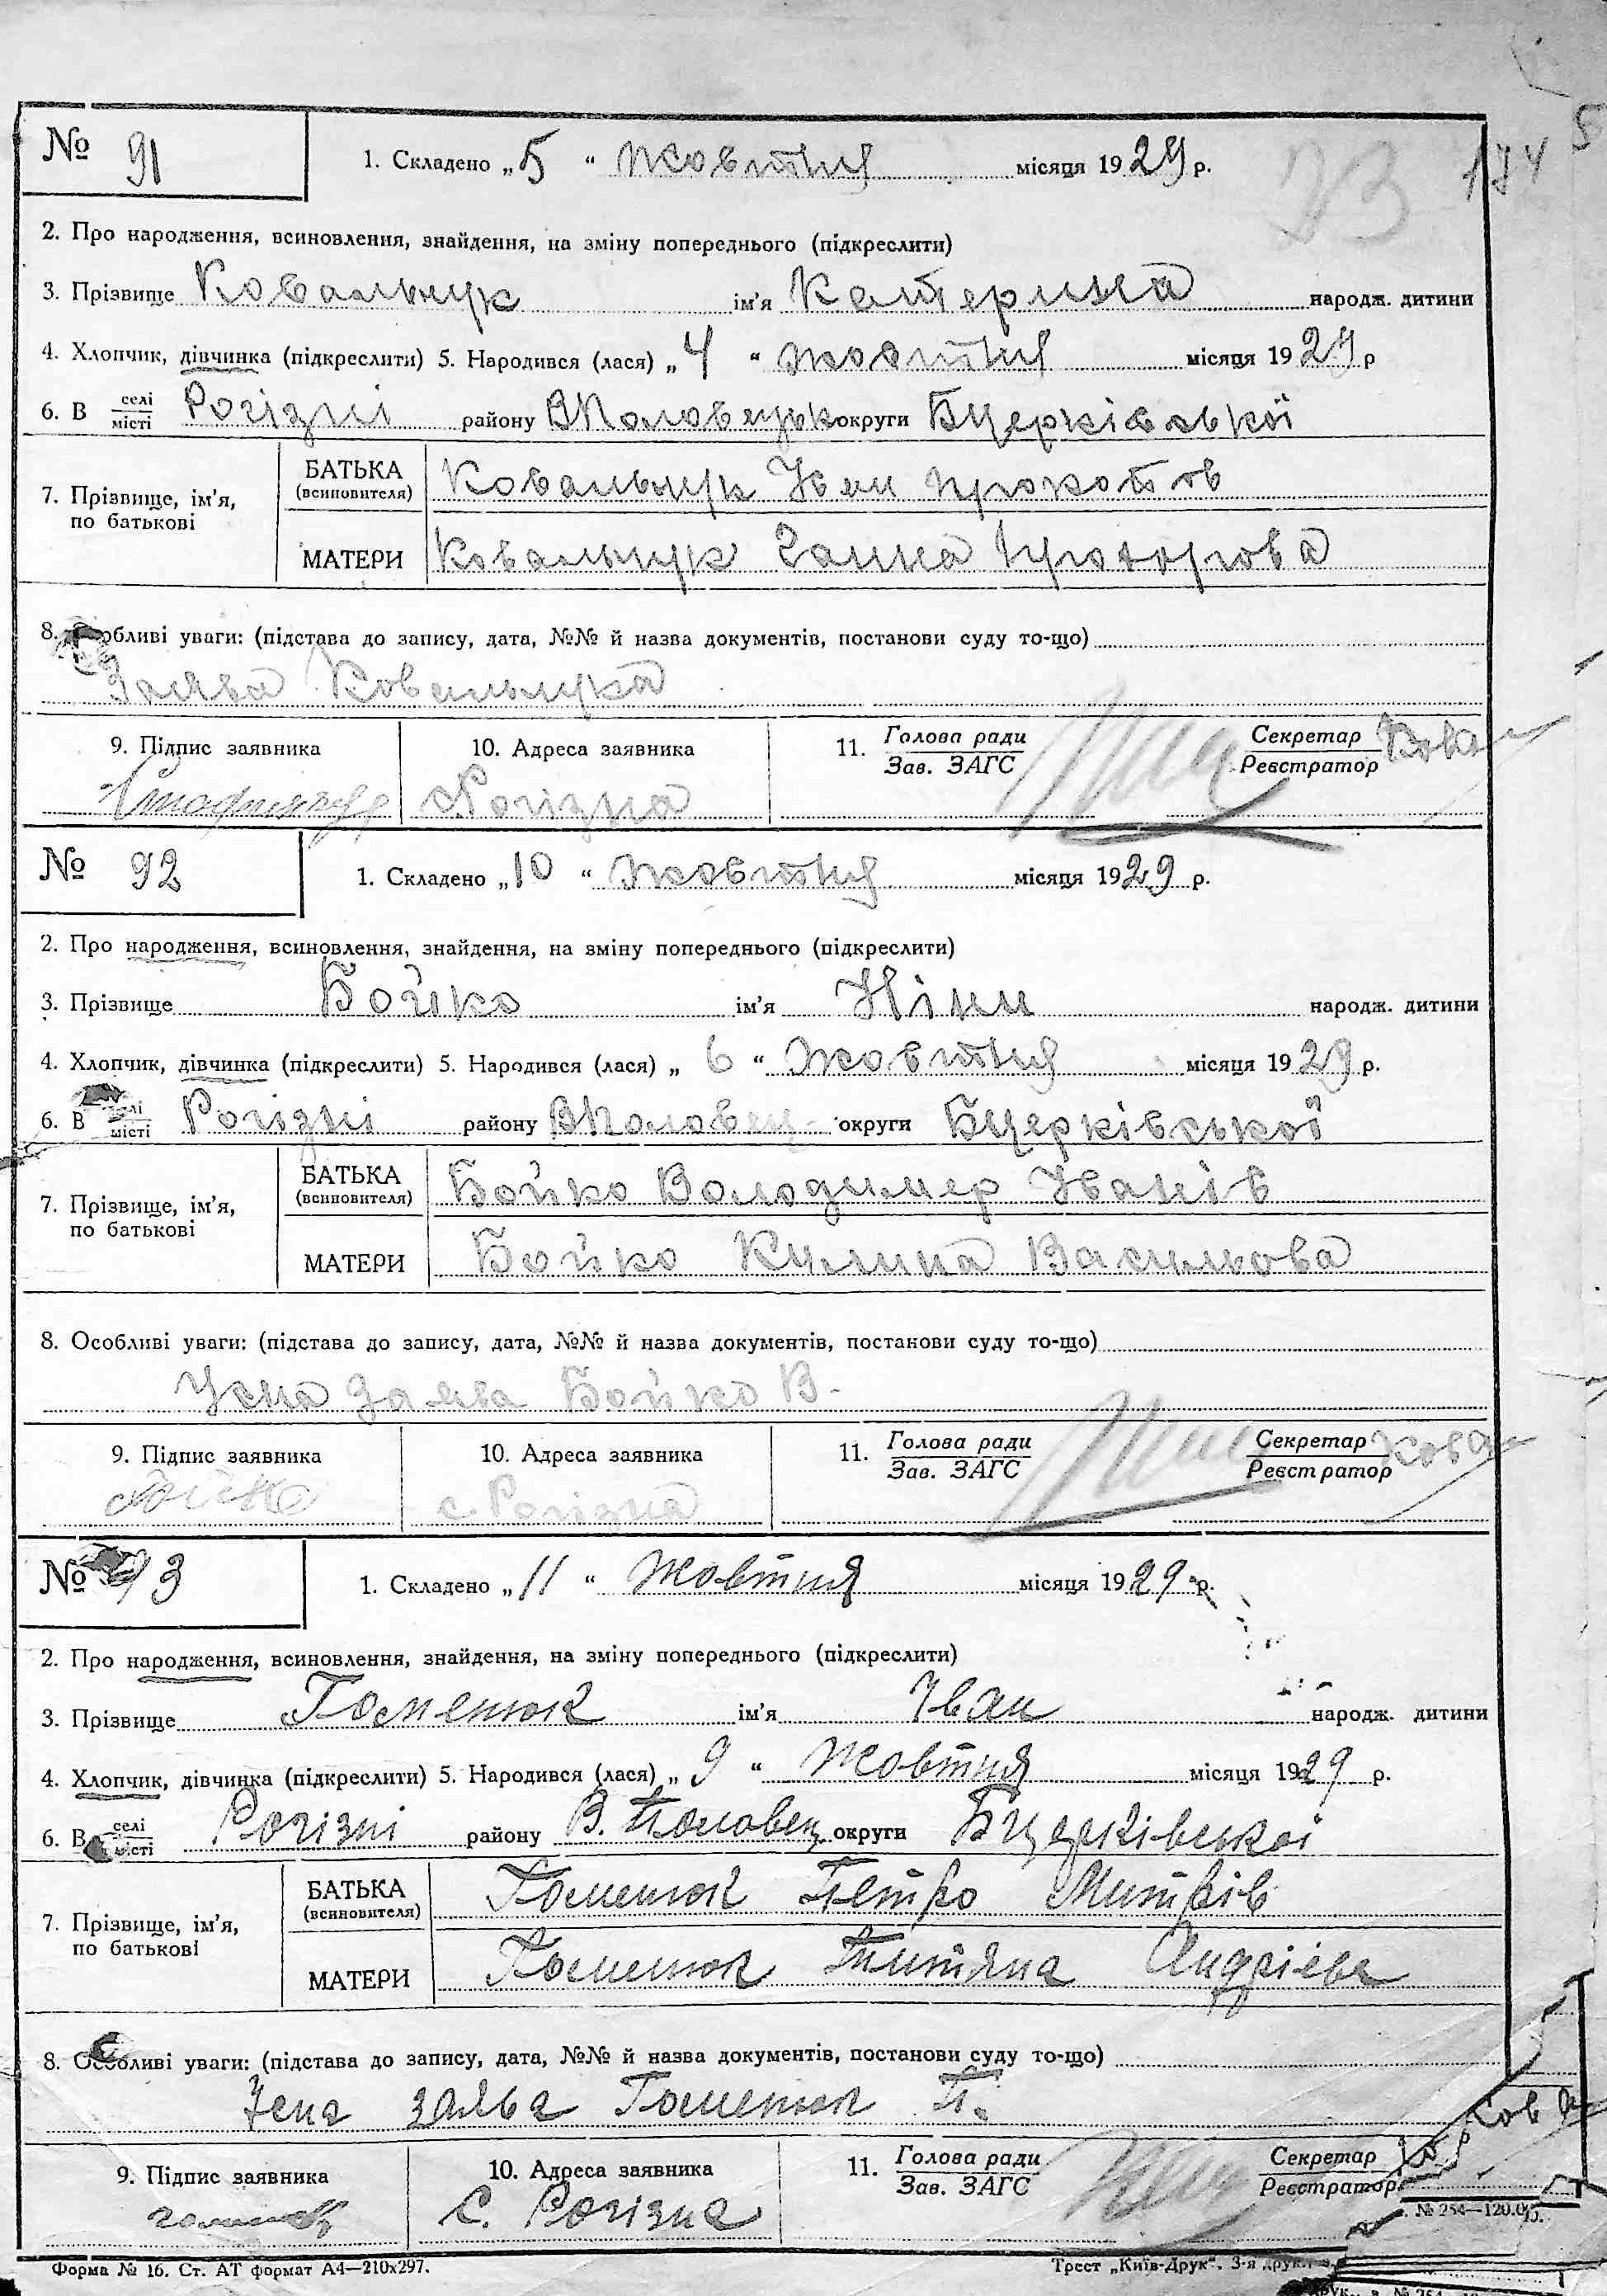 174
№ 91
1. Складено „5“ Жовтня місяця 1929 р.
2. Про народження, всиновлення, знайдення, на зміну попереднього (підкреслити)
3. Прізвище Ковальчук ім'я Катерина народж. дитини
4. Хлопчик, дівчинка (підкреслити) 5. Народився (лася) „4“ жовтня місяця 1929 р
6. В селі місті Рогізні району ВПоловецьк округи БЦерківської
7. Прізвище, ім'я, по батькові
БАТЬКА (всиновителя) Ковальчук Іван Прокопов
МАТЕРИ Ковальчук Ганна
8. Особливі уваги: (підстава до запису, дата, №№ й назва документів, постанови суду то-що)
Заява Ковальчука
9. Підпис заявника
10. Адреса заявника
с. Рогізна
11. Голова ради Зав. ЗАГС
Секретар Реєстратор Ковал
№ 92
1. Складено „10“ жовтня місяця 1929 р.
2. Про народження, всиновлення, знайдення, на зміну попереднього (підкреслити)
3. Прізвище Бойко ім'я Ніни народж. дитини
4. Хлопчик, дівчинка (підкреслити) 5. Народився (лася) „6“ Жовтня місяця 1929 р.
6. В селі місті Рогізні району ВПоловец округи БЦерківської
7. Прізвище, ім'я, по батькові
БАТЬКА (всиновителя) Бойко Володимер Іванів
МАТЕРИ Бойко Килина Васильова
8. Особливі уваги: (підстава до запису, дата, №№ й назва документів, постанови суду то-що)
Усна Заява Бойко В.
9. Підпис заявника
Бойко
10. Адреса заявника
с Рогізна
11. Голова ради Зав. ЗАГС
Секретар Реєстратор Ковал
№ 93
1. Складено „11“ Жовтня місяця 1929 р.
2. Про народження, всиновлення, знайдення, на зміну попереднього (підкреслити)
3. Прізвище Гоменюк ім'я Іван народж. дитини
4. Хлопчик, дівчинка (підкреслити) 5. Народився (лася) „9“ Жовтня місяця 1929 р.
6. В селі місті Рогізні району В. Половец округи БЦерківської
7. Прізвище, ім'я, по батькові
БАТЬКА (всиновителя) Гоменюк Петро Митрів
МАТЕРИ Гоменюк Титяна Андрієва
8. Особливі уваги: (підстава до запису, дата, №№ й назва документів, постанови суду то-що)
Усна заява Гоменюк П.
9. Підпис заявника
10. Адреса заявника
С. Рогізна
11. Голова ради Зав. ЗАГС
Секретар Реєстратор
Форма № 16. Ст. АТ формат А4—210х297.
Трест „Київ-Друк“. 3-я друк.